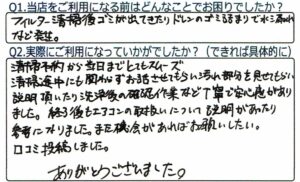 Q1.当店をご利用になる前はどんなことでお困りでしたか？
フィルター清掃後ゴミが出てきたりドレンのゴミ詰まりで水漏れ
など発生。
Q2.実際にご利用になっていかがでしたか？（できれば具体的に）
清掃予約から当日までとてもスムーズ
清掃途中にも関わらずお話させてもらい汚れ部分を見せてもらい
説明頂いたり洗浄後の確認作業など丁寧で安心感があり
ました。終了後もエアコンの取扱いについて説明があったり
参考になりました。また機会があればお願いしたい。
口コミ投稿しました。
ありがとうございました。